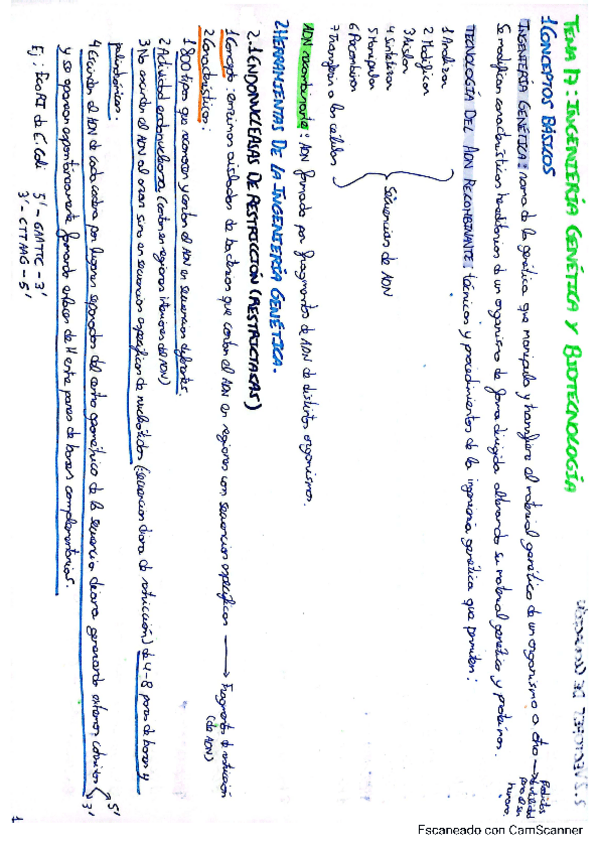 TEMA 17: INGENIERÍA GENÉTICA Y BIOTECNOLOGÍA
1 CONCEPTOS BÁSICOS
INGENIERÍA GENÉTICA: rama de la genética que manipula y transfiere el material genético de un organismo a otro → Producto utilidad para el ser humano.
Se modifican características hereditarias de un organismo de forma dirigida alterando su material genético y proteínas.
TECNOLOGÍA DEL ADN RECOMBINANTE: técnicas y procedimientos de la ingeniería genética que permiten:
1 Analizan
2 Modifican
3 Aislan
4 Sintetizan
5 Manipulan
6 Recombinan
7 Transfieren a las células
Secuencias de ADN
ADN recombinante: ADN formado por fragmentos de ADN de distintos organismos.
2 HERRAMIENTAS DE LA INGENIERÍA GENÉTICA.
2.1 ENDONUCLEASAS DE RESTRICCIÓN (RESTRICTASAS)
1 Concepto: enzimas aisladas de bacterias que cortan el ADN en regiones con secuencias específicas → Fragmentos de restricción (de ADN)
2 Características:
1 800 tipos que reconocen y cortan el ADN en secuencias diferentes.
2 Actividad endonucleasa (cortan en regiones interiores del ADN)
3 No escinden el ADN al azar sino en secuencias específicas de nucleótidos (secuencias diana de restricción) de 4-8 pares de bases y
palindrómicas.
4 Escinden el ADN de cada cadena por lugares separados del centro geométrico de la secuencia diana generando extremos cohesivos 5' 3'
y se aparean espontáneamente formando enlaces de H entre pares de bases complementarias.
Ej: EcoRI de E. Coli 5'- GAATTC - 3'
3'- CTTAAG - 5'
1
Escaneado con CamScanner